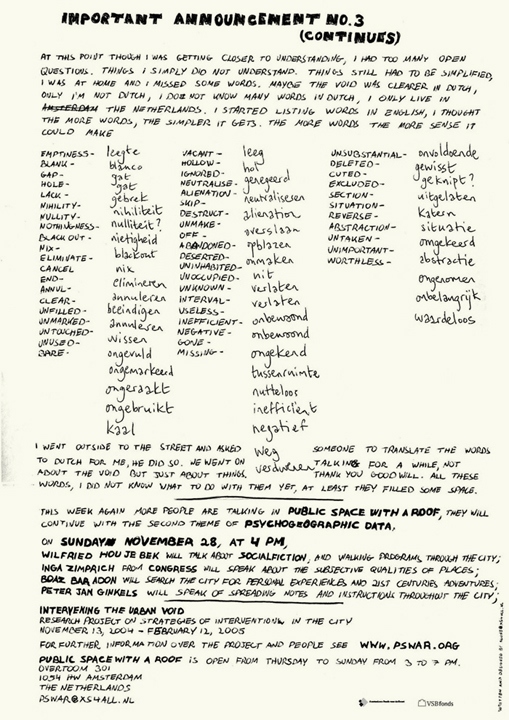 IMPORTANT ANNOUNCEMENT NO.3
(CONTINUES)
AT THIS POINT THOUGH I WAS GETTING CLOSER TO UNDERSTANDING, I HAD TOO MANY OPEN
QUESTIONS. THINGS I SIMPLY DID NOT UNDERSTAND. THINGS STILL HAD TO BE SIMPLIFIED,
I WAS AT HOME AND I MISSED SOME WORDS. MAYBE THE VOID WAS CLEARER IN DUTCH,
ONLY I'M NOT DUTCH, I DOES NOT KNOW MANY WORDS IN DUTCH, I ONLY LIVE IN
AMSTERDAM THE NETHERLANDS. I STARTED LISTING WORDS IN ENGLISH, I THOUGHT
THE MORE WORDS, THE SIMPLER IT GETS. THE MORE WORDS THE MORE SENSE IT
COULD MAKE
EMPTINESS-
BLANK-
GAP-
HOLE-
LACK-
NIHILITY-
NULLITY-
NOTHINGNESS-
BLACK OUT-
NIX-
ELIMINATE-
CANCEL
END-
ANNUL-
CLEAR-
UNFILLED-
UNMARKED-
UNTOUCHED-
UNUSED-
BARE-
leegte
blanco
gat
gat
gebrek
nihiliteit
nulliteit?
nietigheid
blackout
nix
elimineren
annuleren
beëindigen
annuleren
wissen
ongevuld
ongemarkeerd
ongeraakt
ongebruikt
kaal
VACANT-
HOLLOW-
IGNORED-
NEUTRALISE-
ALIENATION-
SKIP-
DESTRUCT-
UNMAKE-
OFF-
ABANDONED-
DESERTED-
UNINHABITED-
UNOCCUPIED-
UNKNOWN-
INTERVAL-
USELESS-
INEFFICIENT-
NEGATIVE-
GONE-
MISSING-
leeg
hol
genegeerd
neutraliseren
alienation
overslaan
opblazen
onmaken
uit
verlaten
verlaten
onbewoond
onbewoond
ongekend
tussenruimte
nutteloos
inefficiënt
negatief
weg
verdwenen
UNSUBSTANTIAL-
DELETED-
CUTED-
EXCLUDED-
SECTION-
SITUATION-
REVERSE-
ABSTRACTION-
UNTAKEN-
UNIMPORTANT-
WORTHLESS-
onvoldoende
gewist
geknipt?
uitgelaten
katern
situatie
omgekeerd
abstractie
ongenomen
onbelangrijk
waardeloos
I WENT OUTSIDE TO THE STREET AND ASKED SOMEONE TO TRANSLATE THE WORDS
TO DUTCH FOR ME, HE DID SO. WE WENT ON TALKING FOR A WHILE, NOT
ABOUT THE VOID BUT JUST ABOUT THINGS. THANK YOU GOODWILL. ALL THESE
WORDS, I DID NOT KNOW WHAT TO DO WITH THEM YET, AT LEAST THEY FILLED SOME SPACE.
THIS WEEK AGAIN MORE PEOPLE ARE TALKING IN PUBLIC SPACE WITH A ROOF, THEY WILL
CONTINUE WITH THE SECOND THEME OF PSYCHOGEOGRAPHIC DATA,
ON SUNDAY NOVEMBER 28, AT 4 PM,
WILFRIED HOU JE BEK WILL TALK ABOUT SOCIALFICTION, AND WALKING PROGRAMS THROUGH THE CITY;
INGA ZIMPRICH FROM CONGRESS WILL SPEAK ABOUT THE SUBJECTIVE QUALITIES OF PLACES;
BOAZ BAR ADON WILL SEARCH THE CITY FOR PERSONAL EXPERIENCES AND 21ST CENTURIES ADVENTURES;
PETER JAN GINKELS WILL SPEAK OF SPREADING NOTES AND INSTRUCTIONS THROUGHOUT THE CITY;
INTERVENING THE URBAN VOID
RESEARCH PROJECT ON STRATEGIES OF INTERVENTION IN THE CITY
NOVEMBER 13, 2004 - FEBRUARY 12, 2005
FOR FURTHER INFORMATION OVER THE PROJECT AND PEOPLE SEE WWW.PSWAR.ORG
PUBLIC SPACE WITH A ROOF IS OPEN FROM THURSDAY TO SUNDAY FROM 3 TO 7 PM.
OVERTOOM 301
1054 HW AMSTERDAM
THE NETHERLANDS
PSWAR@XS4ALL.NL
VSBfonds